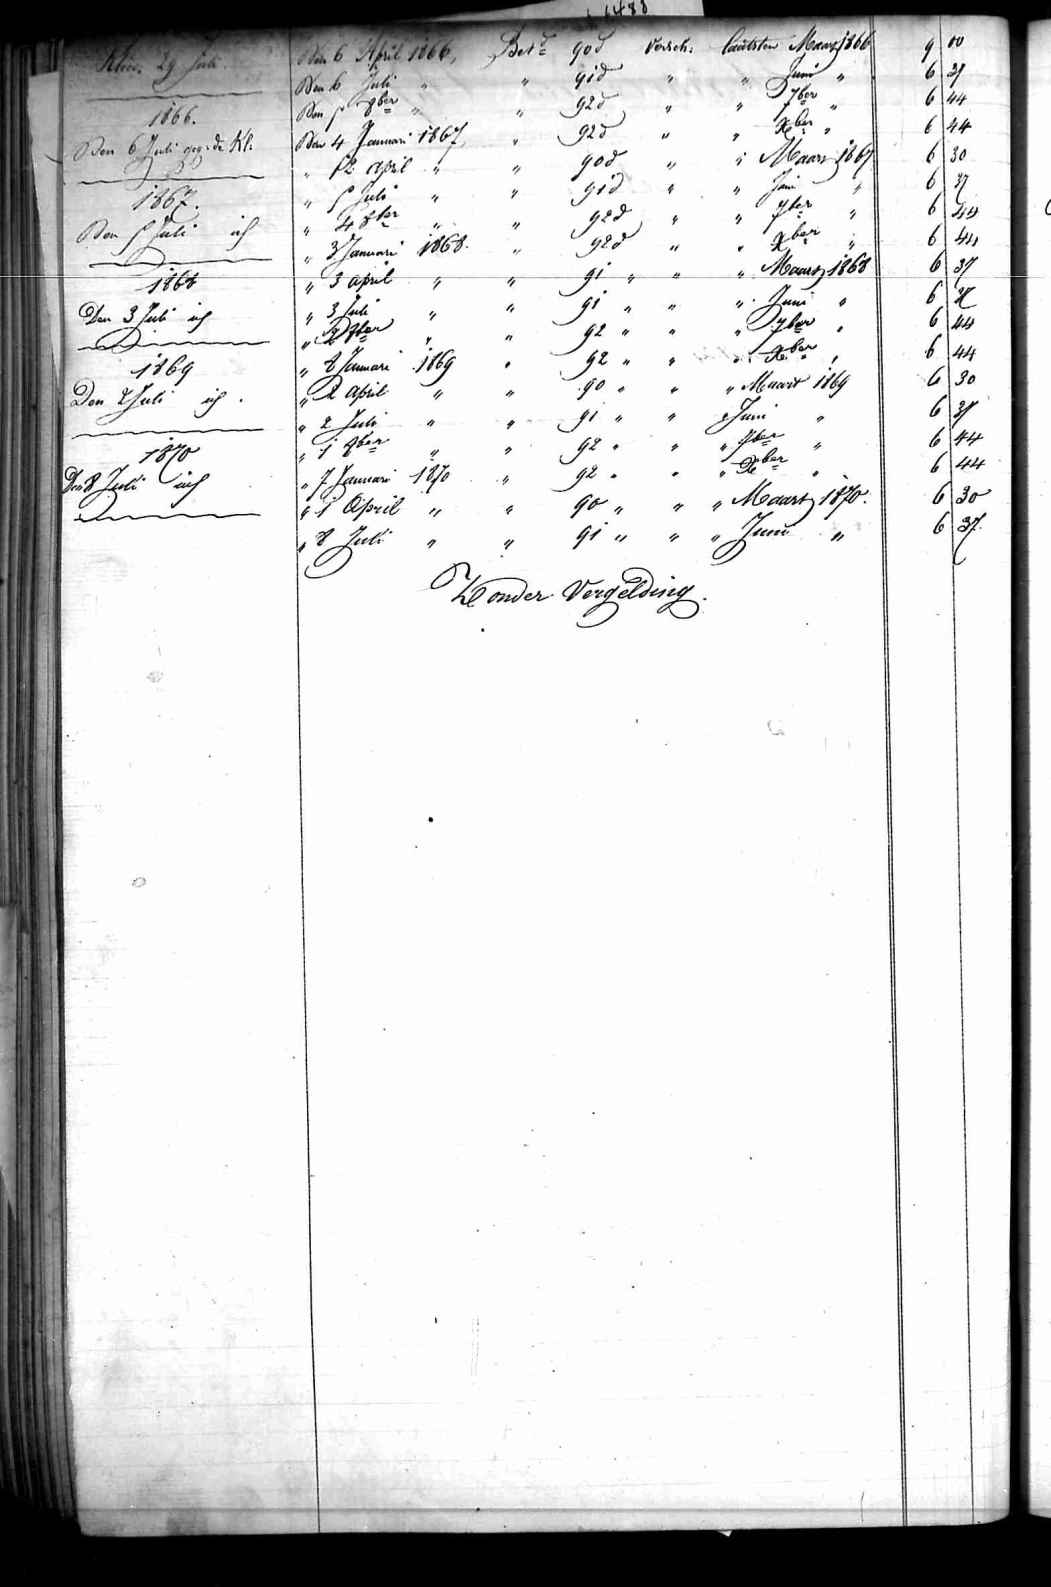 6488
Klee. 29 Juli
1866.
Den 6 Juli geg: de Kl:
1867.
Den 5 Juli id
1868
Den 3 Juli id
1869
Den 2 Juli id.
1870
Den 8 Juli id
Den 6 April 1866, Bet. 90 d versch: laatsten Maart 1866 9 00
Den 6 Juli " " 91 d " " Juni " 6 37
Den 5 8ber " " 92 d " " 7ber " 6 44
Den 4 Januari 1867 " 92 d " " Xber " 6 44
" 12 april " " 90 d " " Maart 1867 6 30
" 5 Juli " " 91 d " " Juni " 6 37
" 4 8ber " " 92 d " " 7ber " 6 44
" 3 Januari 1868. " 92 d " " Xber " 6 44
" 3 april " " 91 " " " Maart 1868 6 37
" 3 Juli " " 91 " " " Juni " 6 37
" 2 8ber " " 92 " " " 7ber " 6 44
" 8 Januari 1869 " 92 " " " Xber " 6 44
" 2 april " " 90 " " " Maart 1869 6 30
" 2 Juli " " 91 " " " Juni " 6 37
" 1 8ber " " 92 " " " 7ber " 6 44
" 7 Januari 1870 " 92 " " " Xber " 6 44
" 1 April " " 90 " " " Maart 1870. 6 30
" 8 Juli " " 91 " " " Juni " 6 37.
Zonder Vergelding.